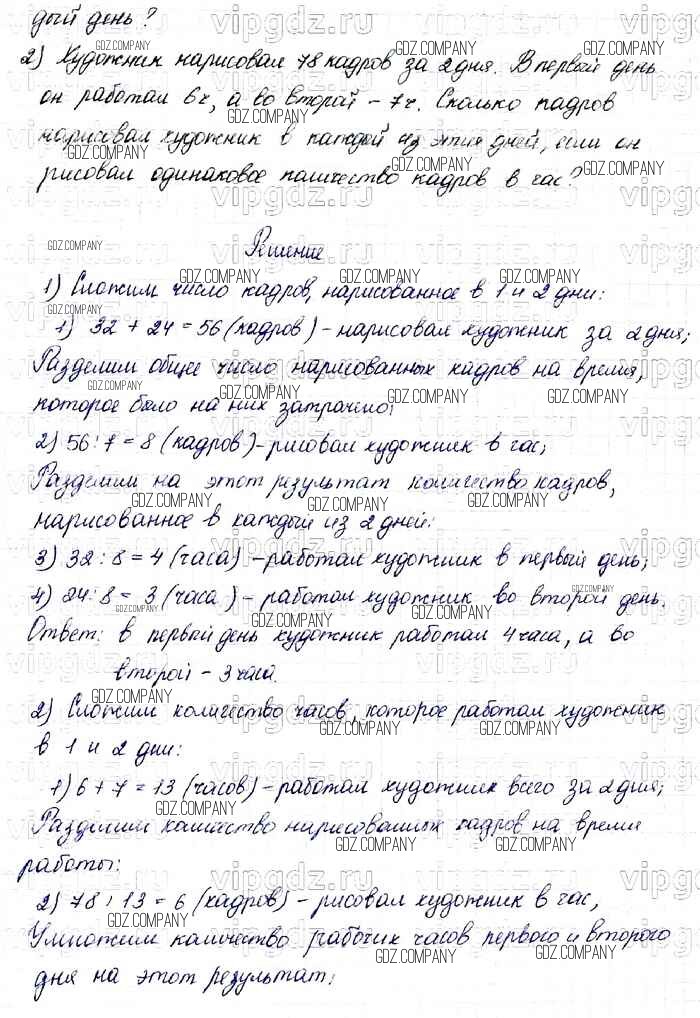 дый день?
2) Художник нарисовал 78 кадров за 2 дня. В первый день
он работал 6ч, а во второй - 7ч. Сколько кадров
нарисовал художник в каждый из этих дней, если он
рисовал одинаковое количество кадров в час?
Решение
1) Сложим число кадров, нарисованное в 1 и 2 дни:
1) 32 + 24 = 56 (кадров) - нарисовал художник за 2 дня;
Разделим общее число нарисованных кадров на время,
которое было на них затрачено:
2) 56 : 7 = 8 (кадров) - рисовал художник в час;
Разделим на этот результат количество кадров,
нарисованное в каждый из 2 дней:
3) 32 : 8 = 4 (часа) - работал художник в первый день;
4) 24 : 8 = 3 (часа) - работал художник во второй день.
Ответ: в первый день художник работал 4 часа, а во
второй - 3 часа.
2) Сложим количество часов, которое работал художник
в 1 и 2 дни:
1) 6 + 7 = 13 (часов) - работал художник всего за 2 дня;
Разделим количество нарисованных кадров на время
работы:
2) 78 : 13 = 6 (кадров) - рисовал художник в час,
Умножим количество рабочих часов первого и второго
дня на этот результат: